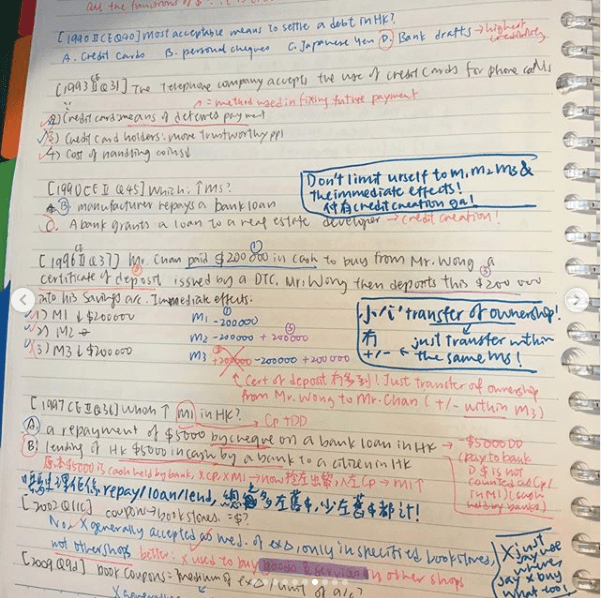 all the functions of $
[1990 II CE Q40] most acceptable means to settle a debt in HK?
A. Credit Cards B. personal cheques C. Japanese Yen D. Bank drafts → highest
[1993 CE II Q31] The telephone company accepts the use of credit cards for phone calls
= method used in fixing future payment
2) Credit card: means of deferred payment
3) Credit card holders: more trustworthy ppl
4) Cost of handling coins↓
Don't limit urself to M1, M2, M3 &
the immediate effects!
credit creation
[1990 CE II Q45] Which: ↑MS?
B. manufacturer repays a bank loan
A bank grants a loan to a real estate developer → credit creation!
[1996 CE II Q37] Mr. Chan paid $200 000 in cash to buy from Mr. Wong a
certificate of deposit issued by a DTC. Mr. Wong then deposits this $200 000
into his savings a/c. Immediate effects.
1) M1 ↓ $200000 M1 -200000
2) M2 M2 -200000 + 200000
3) M3 ↓ $200000 M3 +200000 -200000 + 200000
小心 transfer of ownership!
冇 just transfer within
+/- ← the same MS!
Cert of deposit 冇多到! Just transfer of ownership
from Mr. Wong to Mr. Chan (+/- within M3)
[1997 CE II Q36] Which ↑ M1 in HK?
→ Cp + DD
A) a repayment of $5000 by cheque on a bank loan in HK → -$5000 DD
B) lending of HK $5000 in cash by a bank to a citizen in HK
(pay to bank
$ is not
counted as Cp/
in M1) (cash
held by banks)
原本 $5000 is cash held by bank,
repay/loan/lend,
[2002 Q11c] coupon → bookstores. =$?
No, X generally accepted as med. of exΔ, only in specified bookstores,
not other shops better: X used to buy goods & services in other shops
[2009 Q9d] book coupons: medium of exΔ / unit of a/c?
X just
say use
where,
say X buy
what too!